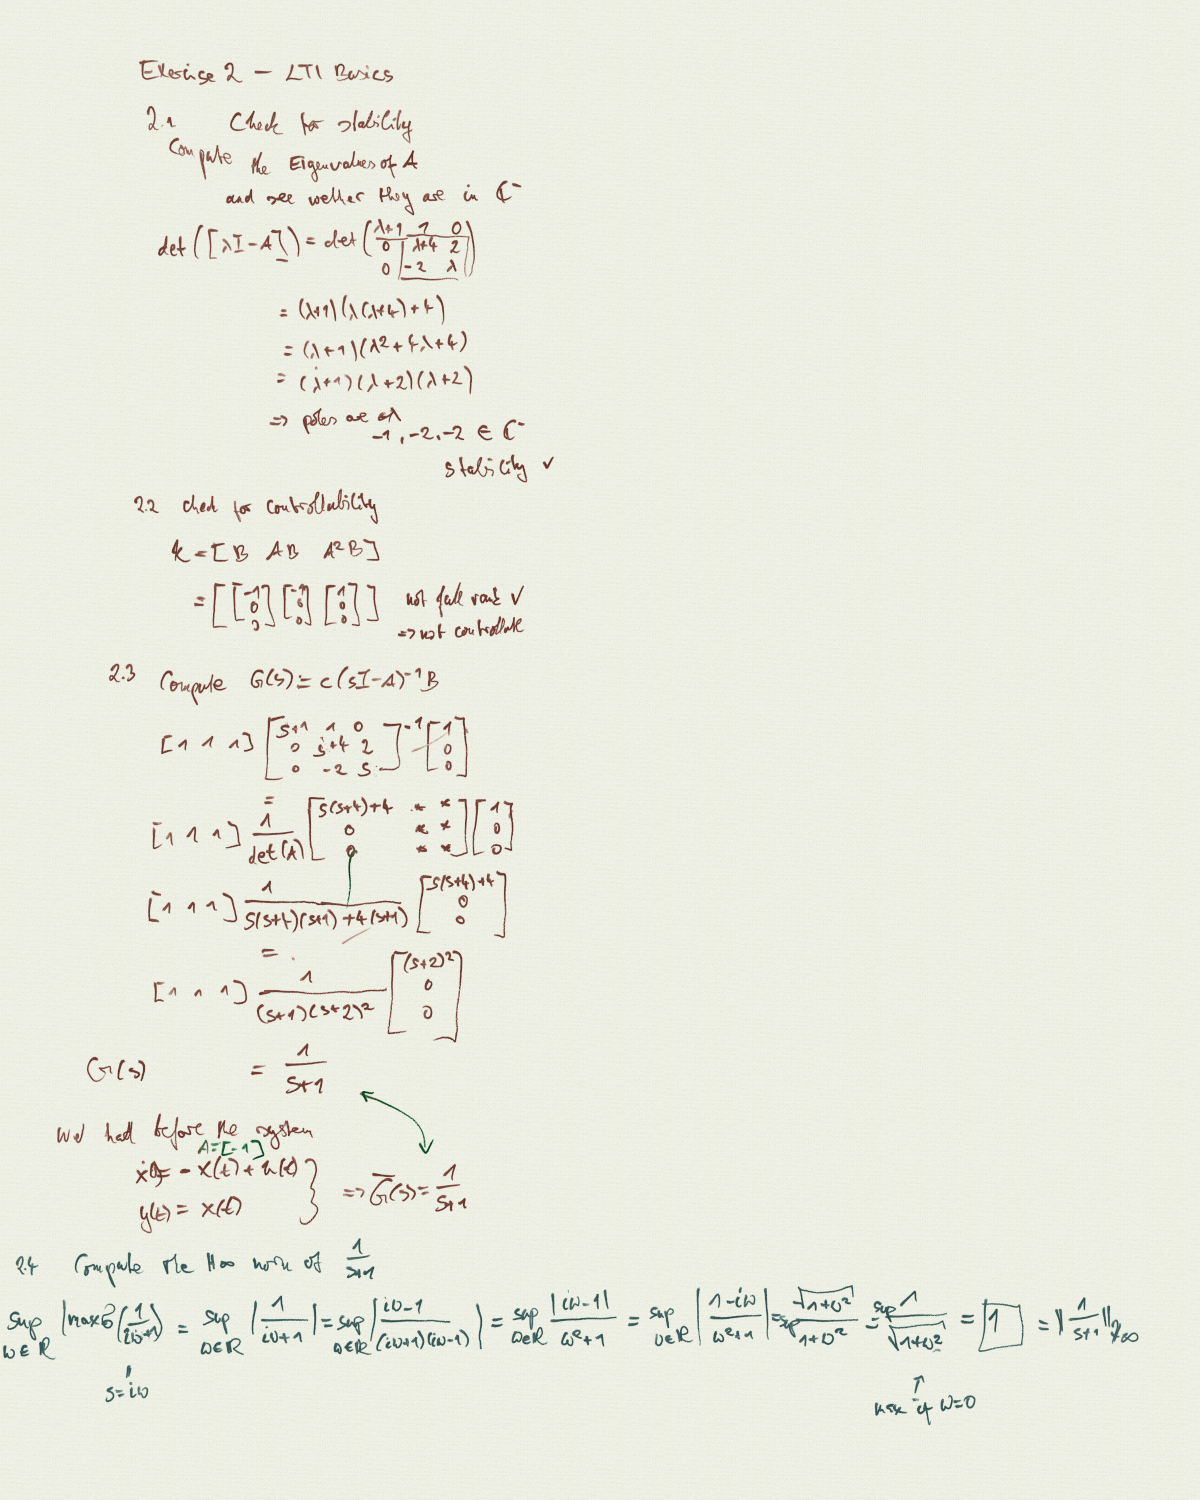 Exercise 2 — LTI Basics
2.1 Check for stability
Compute the Eigenvalues of A
and see wether they are in ℂ⁻
det([λI-A]) = det( λ+1 1 0
0 λ+4 2
0 -2 λ )
= (λ+1)(λ(λ+4)+4)
= (λ+1)(λ²+4λ+4)
= (λ+1)(λ+2)(λ+2)
=> poles are at
-1, -2, -2 ∈ ℂ⁻
stability ✓
2.2 check for controllability
K = [B AB A²B]
= [ [-1 0 0] [-1 0 0] [1 0 0] ] not full rank ✓
=> not controllable
2.3 Compute G(s) = c(sI-A)⁻¹B
[1 1 1] [s+1 1 0
0 s+4 2
0 -2 s]⁻¹ [1 0 0]
=
[1 1 1] 1/det(A) [s(s+4)+4 * *
0 * *
0 * *] [1 0 0]
[1 1 1] 1/(s(s+4)(s+1)+4(s+1)) [s(s+4)+4 0 0]
=
[1 1 1] 1/((s+1)(s+2)²) [(s+2)² 0 0]
G(s) = 1/(s+1)
We had before the system
A=[-1]
ẋ(t) = -x(t) + u(t)
y(t) = x(t) } => G(s) = 1/(s+1)
2.4 Compute the H∞ norm of 1/(s+1)
sup ω∈ℝ |max σ(1/(iω+1)) = sup ω∈ℝ |1/(iω+1)| = sup ω∈ℝ |(iω-1)/((iω+1)(iω-1))| = sup ω∈ℝ |iω-1|/(ω²+1) = sup ω∈ℝ |(1-iω)/(ω²+1)| = sup √(1+ω²)/(1+ω²) = sup 1/√(1+ω²) = 1 = ‖1/(s+1)‖∞
s=iω
max if ω=0